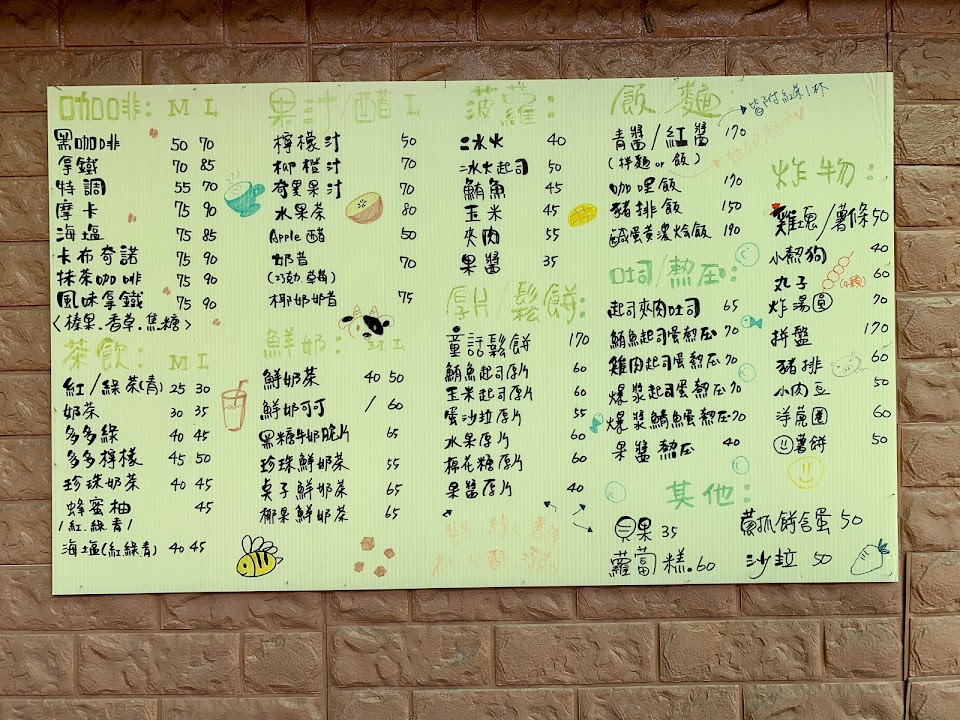 咖啡: M L
黑咖啡 50 70
拿鐵 70 85
特調 55 70
摩卡 75 90
海塩 75 85
卡布奇諾 75 90
抹茶咖啡 75 90
風味拿鐵 75 90
<榛果.香草.焦糖>
茶飲: M L
紅/綠茶(青) 25 30
奶茶 30 35
多多綠 40 45
多多檸檬 45 50
珍珠奶茶 40 45
蜂蜜柚 45
/紅.綠.青/
海塩(紅綠青) 40 45
果汁/醋 L
檸檬汁 50
柳橙汁 70
奇異果汁 70
水果茶 80
Apple醋 50
奶昔 70
(巧克力.草莓)
椰奶奶昔 75
鮮奶: M L
鮮奶茶 40 50
鮮奶可可 / 60
黑糖牛奶脆片 65
珍珠鮮奶茶 55
貞子鮮奶茶 65
椰果鮮奶茶 65
菠蘿:
冰火 40
冰火起司 50
鮪魚 45
玉米 45
夾肉 55
果醬 35
厚片/鬆餅:
童話鬆餅 170
鮪魚起司厚片 60
玉米起司厚片 60
蛋沙拉厚片 55
水果厚片 60
棉花糖厚片 60
果醬厚片 40
飯/麵: 皆附紅茶1杯
青醬/紅醬 170
(拌麵 or 飯)
咖哩飯 170
豬排飯 150
鹹蛋黃濃燴飯 190
吐司/熱压:
起司夾肉吐司 65
鮪魚起司蛋熱压 70
雞肉起司蛋熱压 70
爆漿起司蛋熱压 70
爆漿鮪魚蛋熱压 70
果醬熱压 40
炸物:
雞塊/薯條 50
小熱狗 40
丸子 60
炸湯圓 70
拼盤 170
豬排 60
小肉豆 50
洋蔥圈 60
薯餅 50
其他:
貝果 35
蔥抓餅含蛋 50
蘿蔔糕. 60
沙拉 50